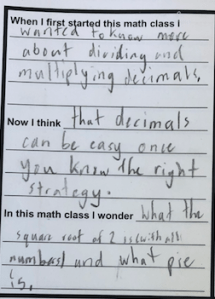 When I first started this math class I
wanted to know more
about dividing and
multiplying decimals.
Now I think that decimals
can be easy once
you know the right
strategy.
In this math class I wonder What the
square root of 2 is (with all
numbers) and what pie
is.